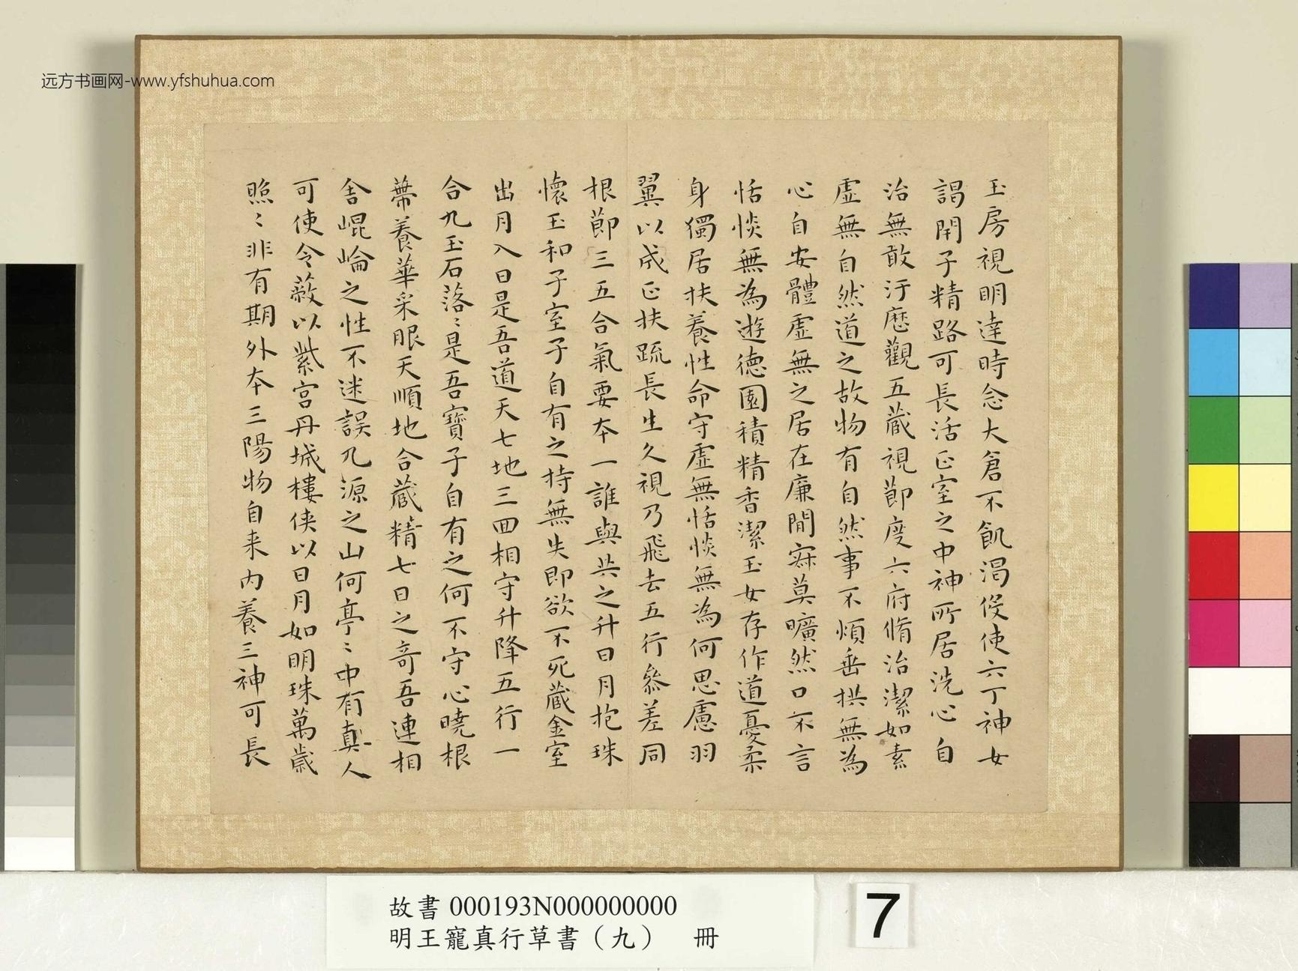 远方书画网-www.yfshuhua.com
玉房視明達時念大倉不飢渴伇使六丁神女
謁閇子精路可長活正室之中神所居洗心自
治無敢汙歷觀五藏視節度六府脩治潔如素
虛無自然道之故物有自然事不煩垂拱無為
心自安體虛無之居在廉間寂莫曠然口不言
恬惔無為遊德園積精香潔玉女存作道憂柔
身獨居扶養性命守虛無恬惔無為何思慮羽
翼以成正扶疏長生久視乃飛去五行參差同
根節三五合氣要本一誰與共之升日月抱珠
懷玉和子室子自有之持無失即欲不死藏金室
出月入日是吾道天七地三回相守升降五行一
合九玉石落〻是吾寶子自有之何不守心曉根
蔕養華采眼天順地合藏精七日之奇吾連相
舍崐崘之性不迷誤九源之山何亭〻中有真人
可使令蔽以紫宮丹城樓俠以日月如明珠萬歲
照〻非有期外本三陽物自来內養三神可長
故書 000193N000000000
明王寵真行草書（九） 冊
7